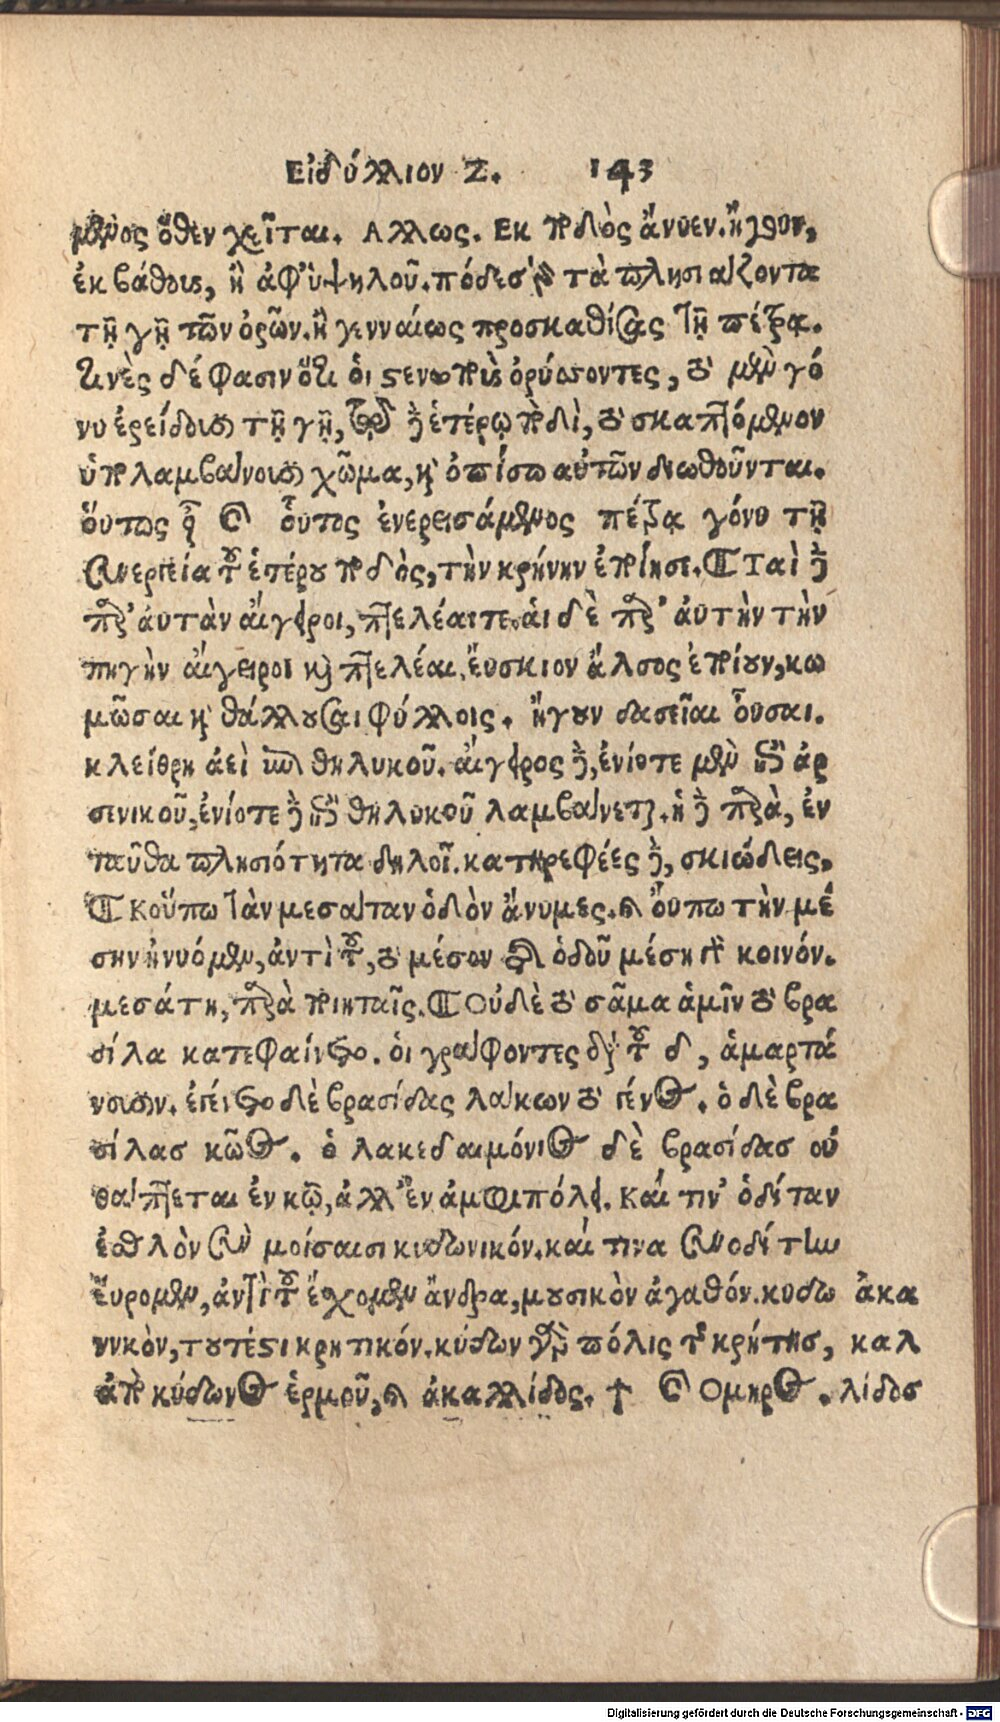 Εἰδύλλιον Ζ. 143
μενος ὅθεν χεῖται. Αλλως. Εκ ποδὸς ἄνυεν. ἤγουν,
ἐκ βάθους, ἢ ἀφ' ὑψηλοῦ. πόδες γὰρ τὰ πλησιάζοντα
τῇ γῇ τῶν ὀρῶν. ἢ γενναίως προσκαθίσας τῇ πέτρᾳ.
τινὲς δέ φασιν ὅτι οἱ στενοποιὸὺς ὀρύσσοντες, τὸ μὲν γό
νυ ἐρείδουσι τῇ γῇ, τῷ δὲ ἑτέρῳ ποδὶ, τὸ σκαπτόμενον
ὑπολαμβάνουσι χῶμα, καὶ ὀπίσω αὐτῶν διωθοῦνται.
ὅυτως οὖν καὶ οὗτος ἐνερεισάμενος πέτρᾳ γόνυ τῇ
συνεργείᾳ τοῦ ἑτέρου ποδὸς, τὴν κρήνην ἐποίησε. Ταὶ δὲ
παρ' ἀυτὰν αἴγειροι, πτελέαι τε. αἱ δὲ παρ' ἀυτὴν τὴν
πηγὴν αἴγειροι καὶ πτελέαι, ἔυσκιον ἄλσος ἐποίουν, κο
μῶσαι καὶ θάλλουσαι φύλλοις. ἤγουν δασεῖαι οὖσαι.
κλείθρη ἀεὶ ἐπὶ θηλυκοῦ. αἴγειρος δὲ, ἐνίοτε μὲν ἐπὶ ἀρ
σενικοῦ, ἐνίοτε δὲ ἐπὶ θηλυκοῦ λαμβάνεται. ἡ δὲ παρὰ, ἐν
ταῦθα πλησιότητα δηλοῖ. κατηρεφέες δὲ, σκιώδεις.
Κοὔπω τὰν μεσάταν ὁδὸν ἄνυμες. καὶ οὔπω τὴν μέ
σην ἠνυόμεν, ἀντὶ τοῦ, τὸ μέσον τῆς ὁδοῦ μέση τὸ κοινόν.
μεσάτη, παρὰ ποιηταῖς. Οὐδὲ τὸ σᾶμα ἁμῖν τὸ βρα
σίλα κατεφαίνετο. οἱ γράφοντες διὰ τοῦ δ, ἁμαρτά
νουσιν. ἐπεὶ τὸ δὲ βρασίδας λάκων τὸ γένος. ὁ δὲ βρα
σίλας κῶος. ὁ λακεδαιμόνιος δὲ βρασίδας οὐ
θάπτεται ἐν κῷ, ἀλλ' ἐν ἀμφιπόλει. Καί τιν' ὁδίταν
ἐσθλὸν σὺν μοίσαισι κυδωνικόν. καί τινα συνοδίτην
ἕυρομεν, ἀντὶ τοῦ ἔχομεν ἄνδρα, μουσικὸν ἀγαθόν. κυδω ἀκα
νικὸν, τουτέστι κρητικόν. κύδων γὰρ πόλις τῆς κρήτης, καλ
ἀπὸ κύδωνος ἑρμοῦ, καὶ ἀκαλλίδος. † καὶ Ομηρος. λίδος